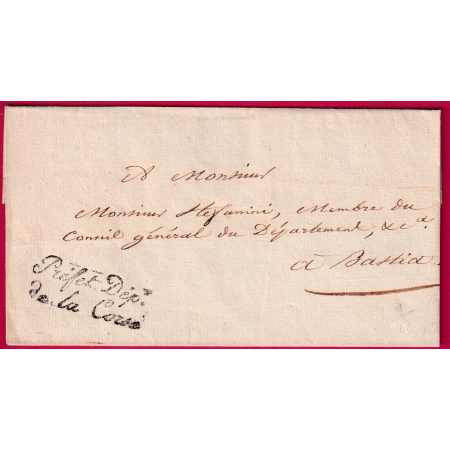 A Monsieur
Monsieur Stefanini, Membre du
Conseil général du Département, &c.ª
à Bastia
Préfet Dép.ᵗ
de la Corse